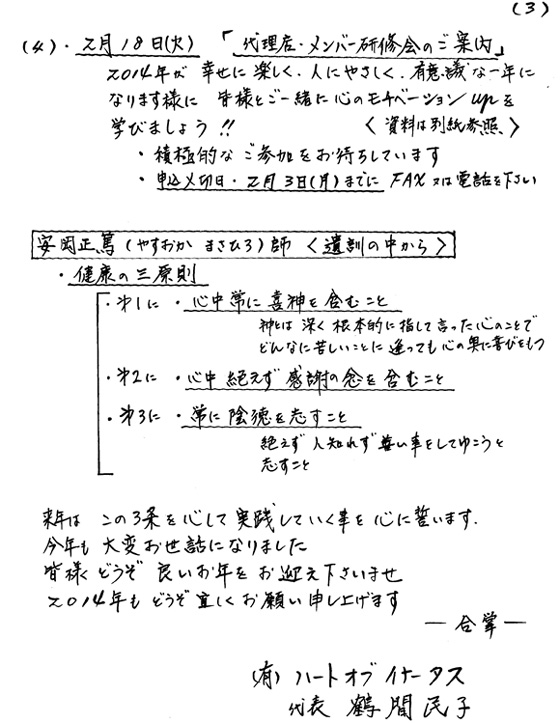 (3)
(4)・2月18日(火) 「代理店・メンバー研修会のご案内」
2014年が 幸せに楽しく、人にやさしく、有意議な一年に
なります様に 皆様とご一緒に心のモチベーションupを
学びましょう!! 〈資料は別紙参照、〉
・積極的なご参加をお待ちしています
・申込〆切日・2月3日(月)までに FAX又は電話を下さい
安岡正篤(やすおか まさひろ)師〈遺訓の中から〉
・健康の三原則
・才1に・心中常に喜神を含むこと
神とは 深く根本的に指して言った心のことで
どんなに苦しいことに逢っても心の奥に喜びをもつ
・才2に・心中絶えず感謝の念を含むこと
・才3に・常に陰徳を志すこと
絶えず人知れず善い事をしてゆこうと
志すこと
来年は この3条を心して実践していく事を心に誓います.
今年も 大変お世話になりました
皆様 どうぞ 良いお年をお迎え下さいませ
2014年も どうぞ宜しくお願い申し上げます
―合掌―
(有)ハートオブイナータス
代表 鶴間民子